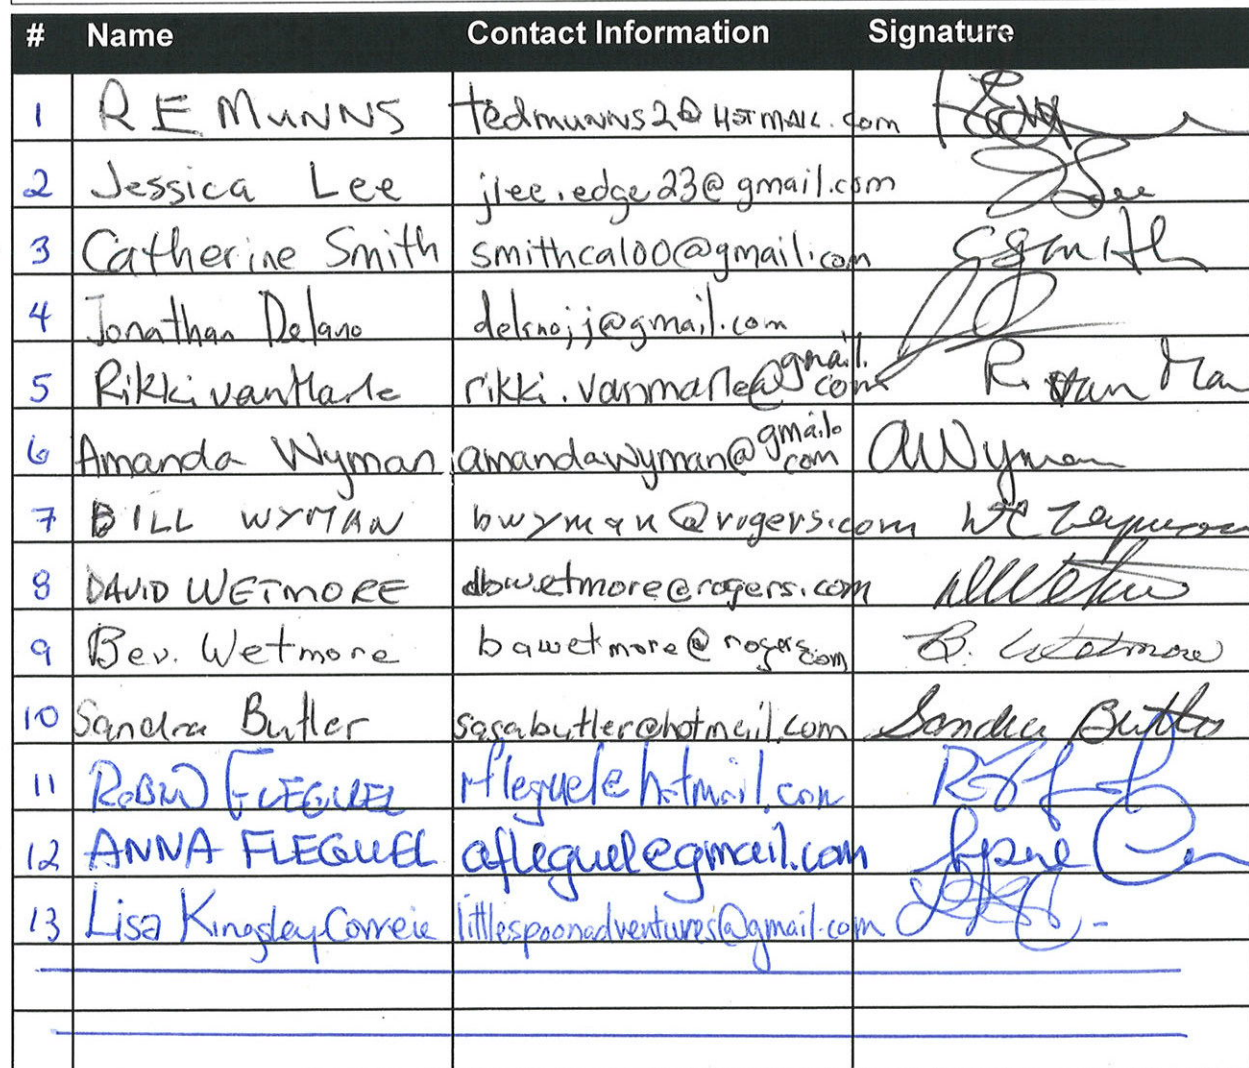 # Name Contact Information Signature
1 R E MUNNS tedmunns2@HOTMAIL.com
2 Jessica Lee jlee.edge23@gmail.com JLee
3 Catherine Smith smithcal00@gmail.com CSmith
4 Jonathan Delano delanojj@gmail.com
5 Rikki vanMarle rikki.vanmarle@gmail.com R. van Mar
6 Amanda Wyman amandawyman@gmail.com AWyman
7 BILL WYMAN bwyman@rogers.com
8 DAVID WETMORE dbwetmore@rogers.com
9 Bev. Wetmore bawetmore@rogers.com B. Wetmore
10 Sandra Butler sasabutler@hotmail.com Sandra Butler
11 ROBIN FLEGUEL rfleguel@hotmail.com
12 ANNA FLEGUEL afleguel@gmail.com
13 Lisa Kingsley-Correia littlespoonadventures@gmail.com